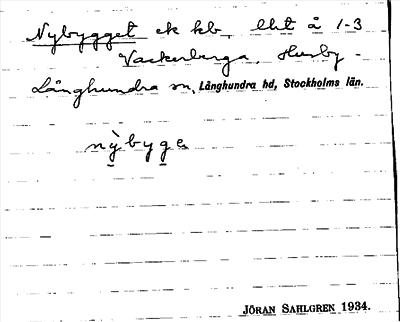 Nybygget ek kb, lht å 1-3
Vackerberga, Husby-
Långhundra sn, Långhundra hd, Stockholms län.
nỳbyge
JÖRAN SAHLGREN 1934.